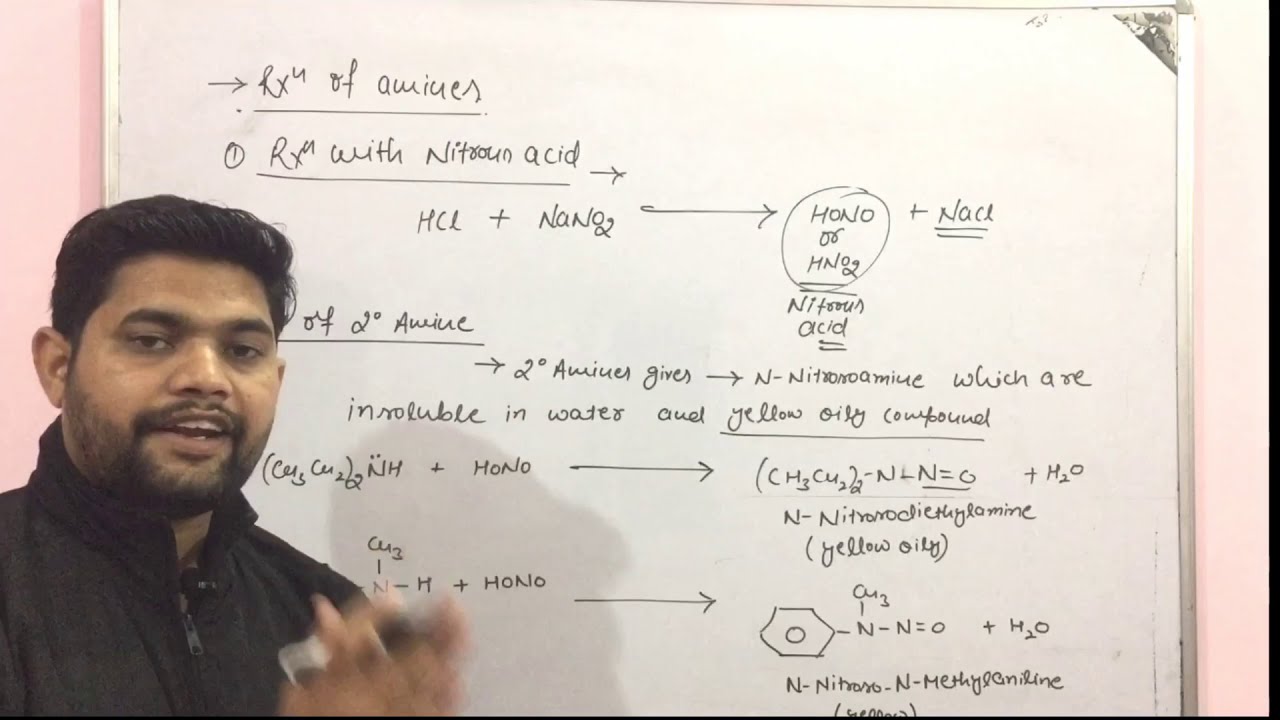 → Rxn of amines
① Rxn with Nitrous acid →
HCl + NaNO2 ⟶ HONO + NaCl
or
HNO2
Nitrous
acid
of 2° Amine
→ 2° Amines gives → N-Nitrosoamine which are
insoluble in water and yellow oily compound
(CH3CH2)2N̈H + HONO ⟶ (CH3CH2)2-N-N=O + H2O
N-Nitrosodiethylamine
(yellow oily)
CH3
N-H + HONO ⟶
CH3
-N-N=O + H2O
N-Nitroso-N-Methylaniline
(yellow)